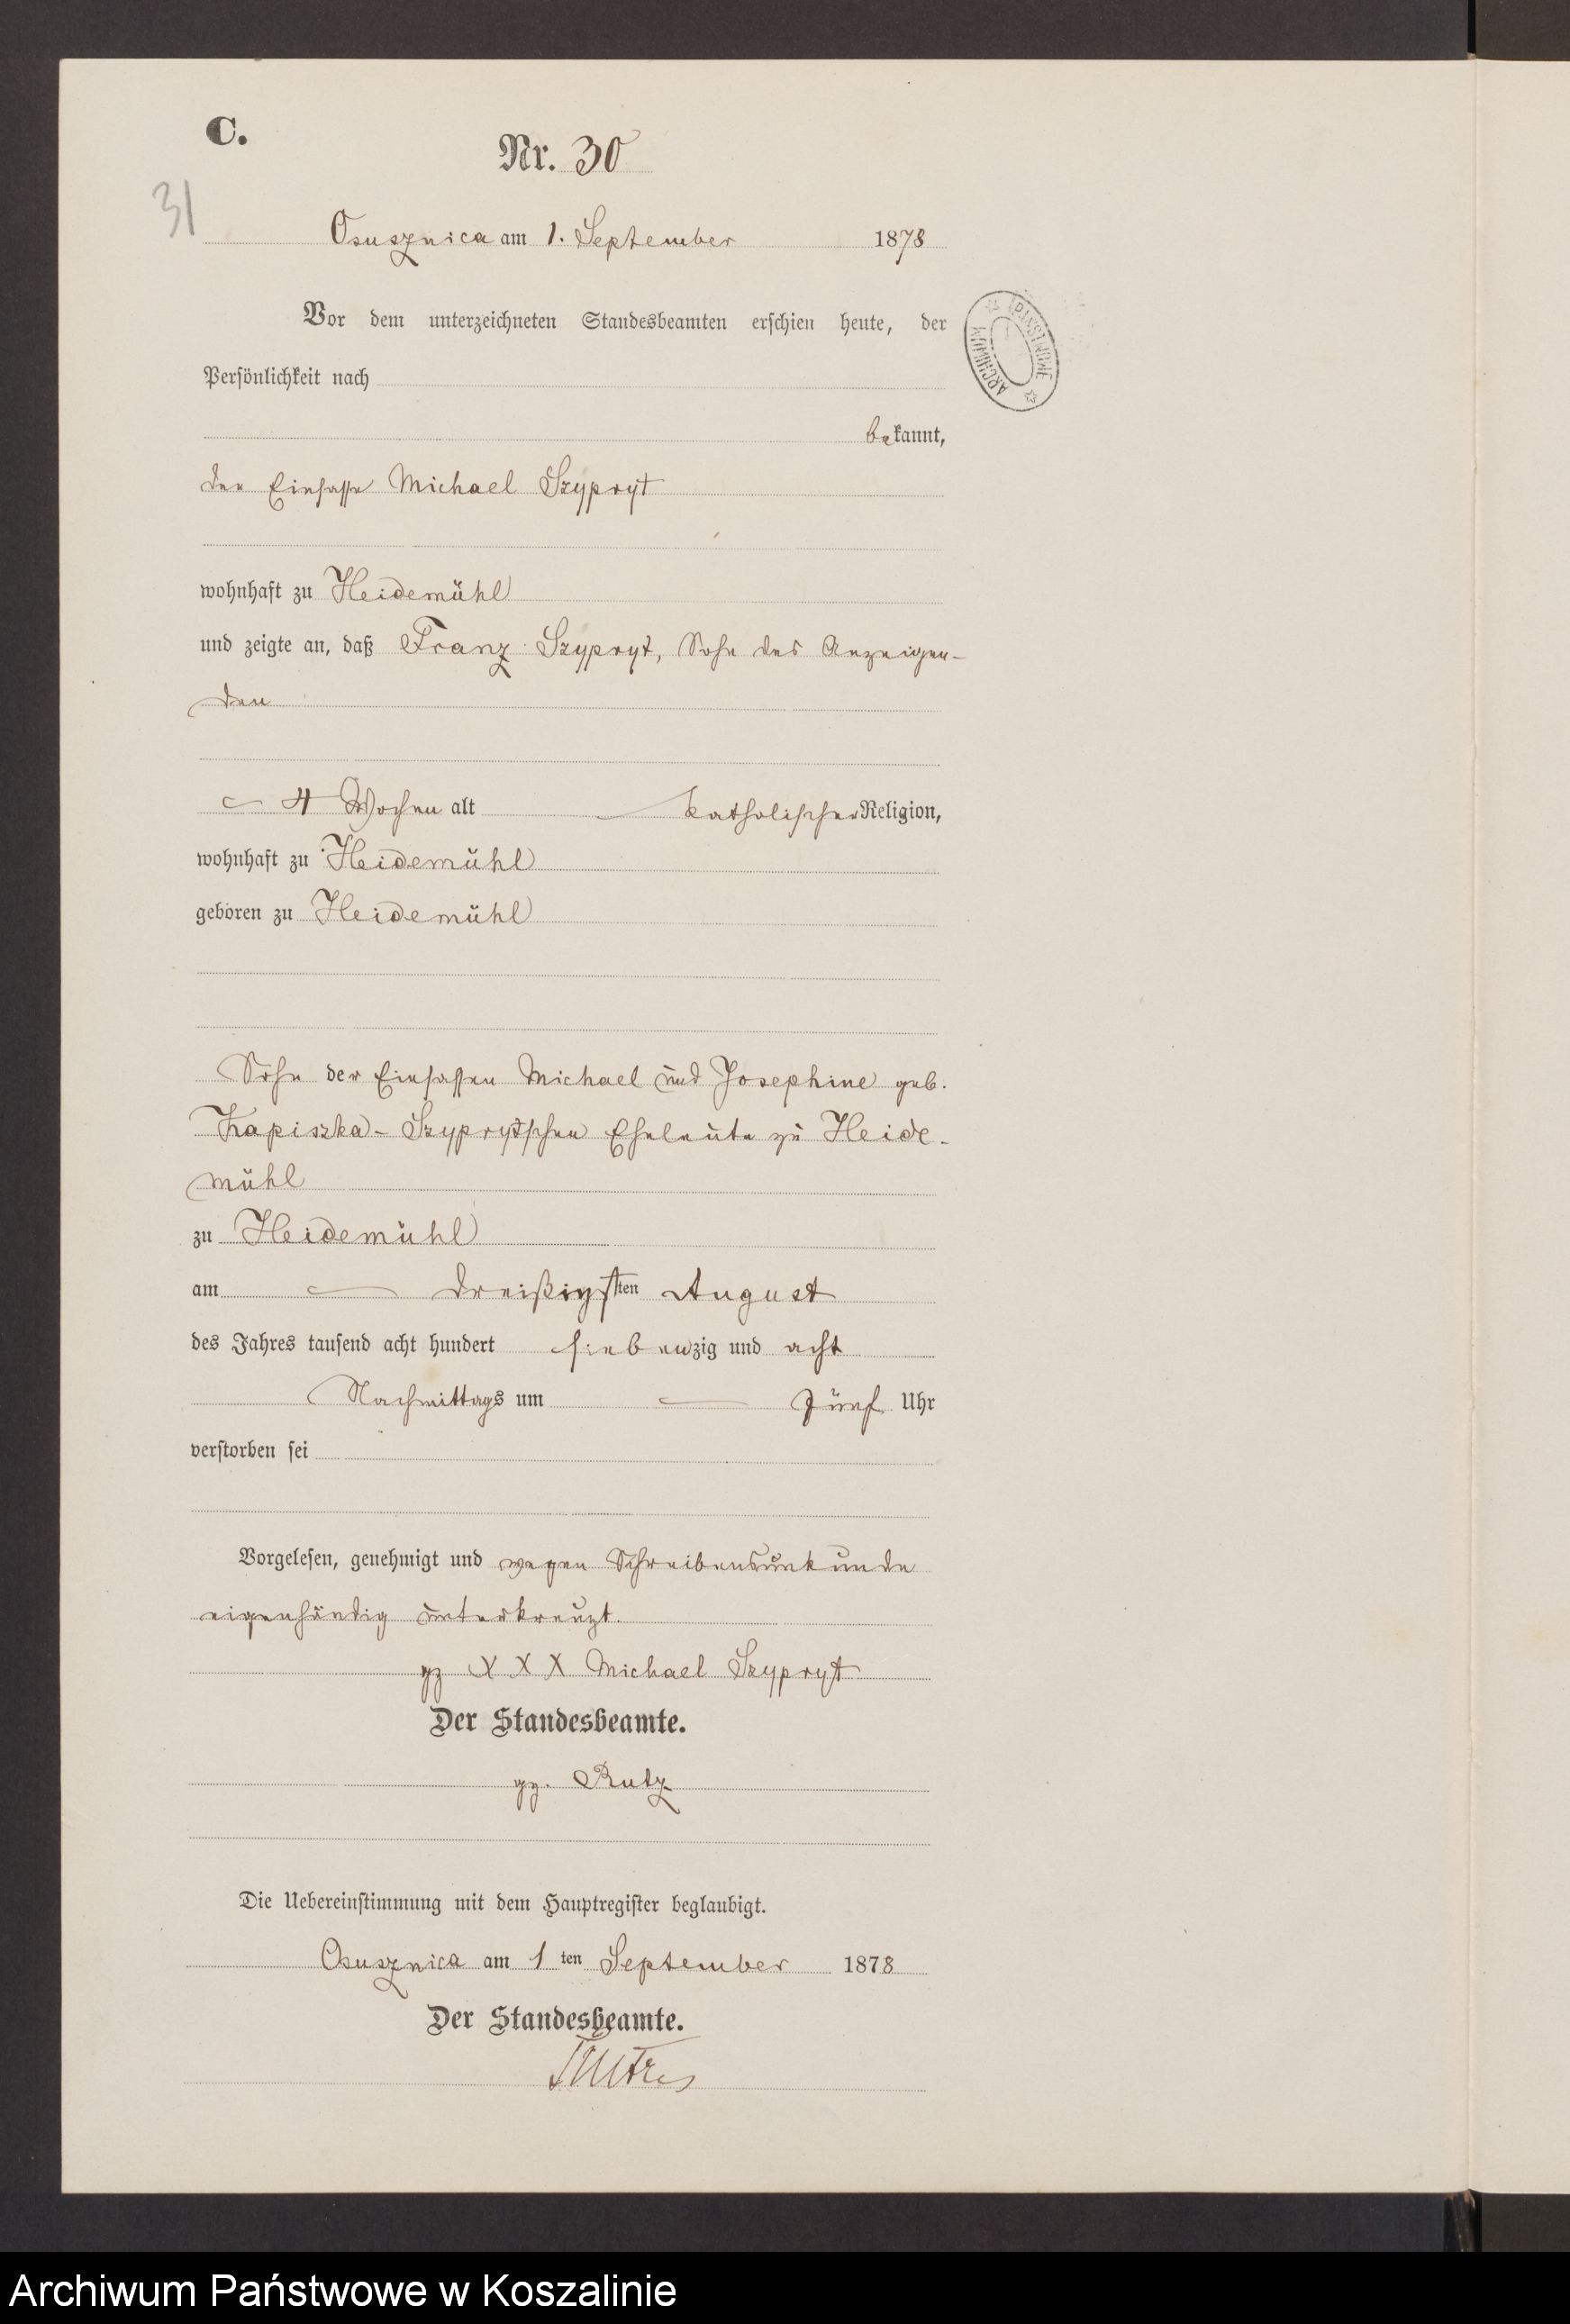 C.
Nr. 30
31
Osusznica am 1. September 1878
Vor dem unterzeichneten Standesbeamten erschien heute, der
Persönlichkeit nach
bekannt,
der Einsasse Michael Szypryt
wohnhaft zu Heidemühl
und zeigte an, daß Franz Szypryt, Sohn des Anzeigen-
den
4 Wochen alt katholischer Religion,
wohnhaft zu Heidemühl
geboren zu Heidemühl
Sohn der Einsassen Michael und Josephine geb.
Kapiszka-Szypryt'schen Eheleute zu Heide-
mühl
zu Heidemühl
am dreißigsten August
des Jahres tausend acht hundert siebenzig und acht
Nachmittags um fünf Uhr
verstorben sei
Vorgelesen, genehmigt und wegen Schreibensunkunde
eigenhändig unterkreuzt.
gz X X X Michael Szypryt
Der Standesbeamte.
gz. Rutz
Die Uebereinstimmung mit dem Hauptregister beglaubigt.
Osusznica am 1 ten September 1878
Der Standesbeamte.
ARCHIWUM PAŃSTWOWE
Archiwum Państwowe w Koszalinie